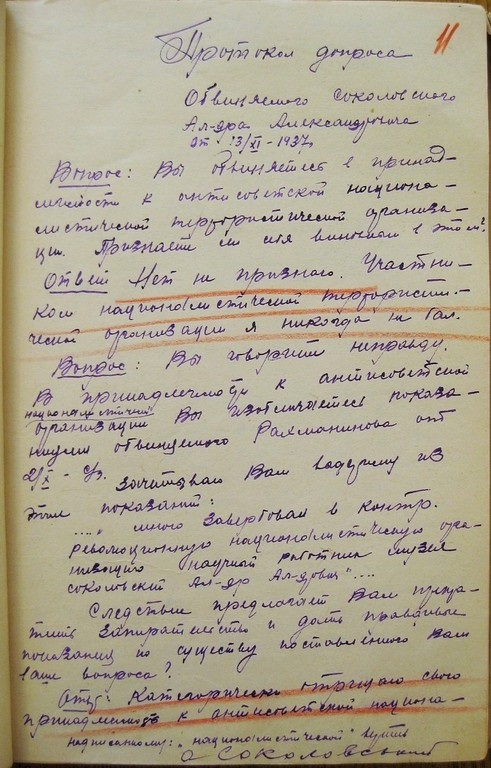 11
Протокол допроса
Обвиняемого Соколовского
Ал-дра Александровича
от 13/XI - 1937г.
Вопрос: Вы обвиняетесь в принад-
лежности к антисоветской национа-
листической террористической организа-
ции. Признаете ли себя виновным в этом?
Ответ Нет не признаю. Участни-
ком националистической террористи-
ческой организации я никогда не был.
Вопрос: Вы говорите неправду.
В принадлежности к антисоветской
националистичной
организации Вы изобличаетесь показа-
ниями обвиняемого Рахманинова от
2/XI - с/г. Зачитываю Вам выдержку из
этих показаний:
....„ мною завербован в контр.
революционную националистическую орга-
низацию научный работник музея
Соколовский Ал-др Ал-дрович"....
Следствие предлагает Вам прекра-
тить запирательство и дать правдивые
показания по существу поставленного Вам
выше вопроса?
Ответ: Категорически отрицаю свою
принадлежность к антисоветской национа-
надписанному: „националистической" верить
Соколовський